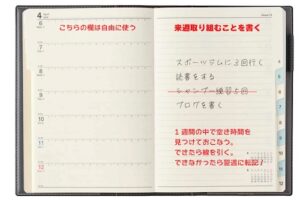 4
こちらの欄は自由に使う
来週取り組むことを書く
6
7
8
9
10
11
12
スポーツジムに3回行く
読書をする
シャンプー練習5回
ブログを書く
1週間の中で空き時間を
見つけておこなう。
できたら線を引く。
できなかったら翌週に転記!